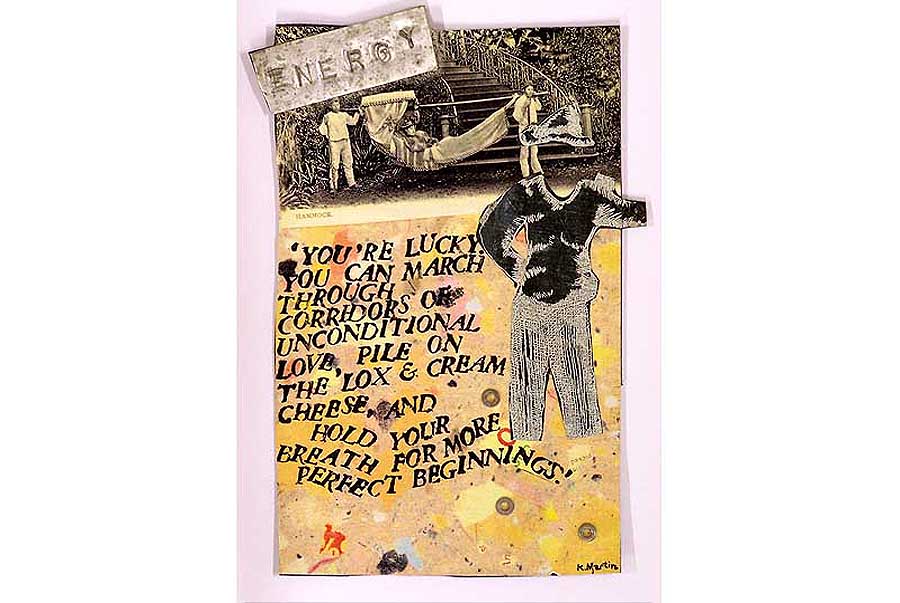 ENERGY
HAMMOCK.
'YOU'RE LUCKY.
YOU CAN MARCH
THROUGH
CORRIDORS OF
UNCONDITIONAL
LOVE, PILE ON
THE LOX & CREAM
CHEESE, AND
HOLD YOUR
BREATH FOR MORE
PERFECT BEGINNINGS.'
K.Martin